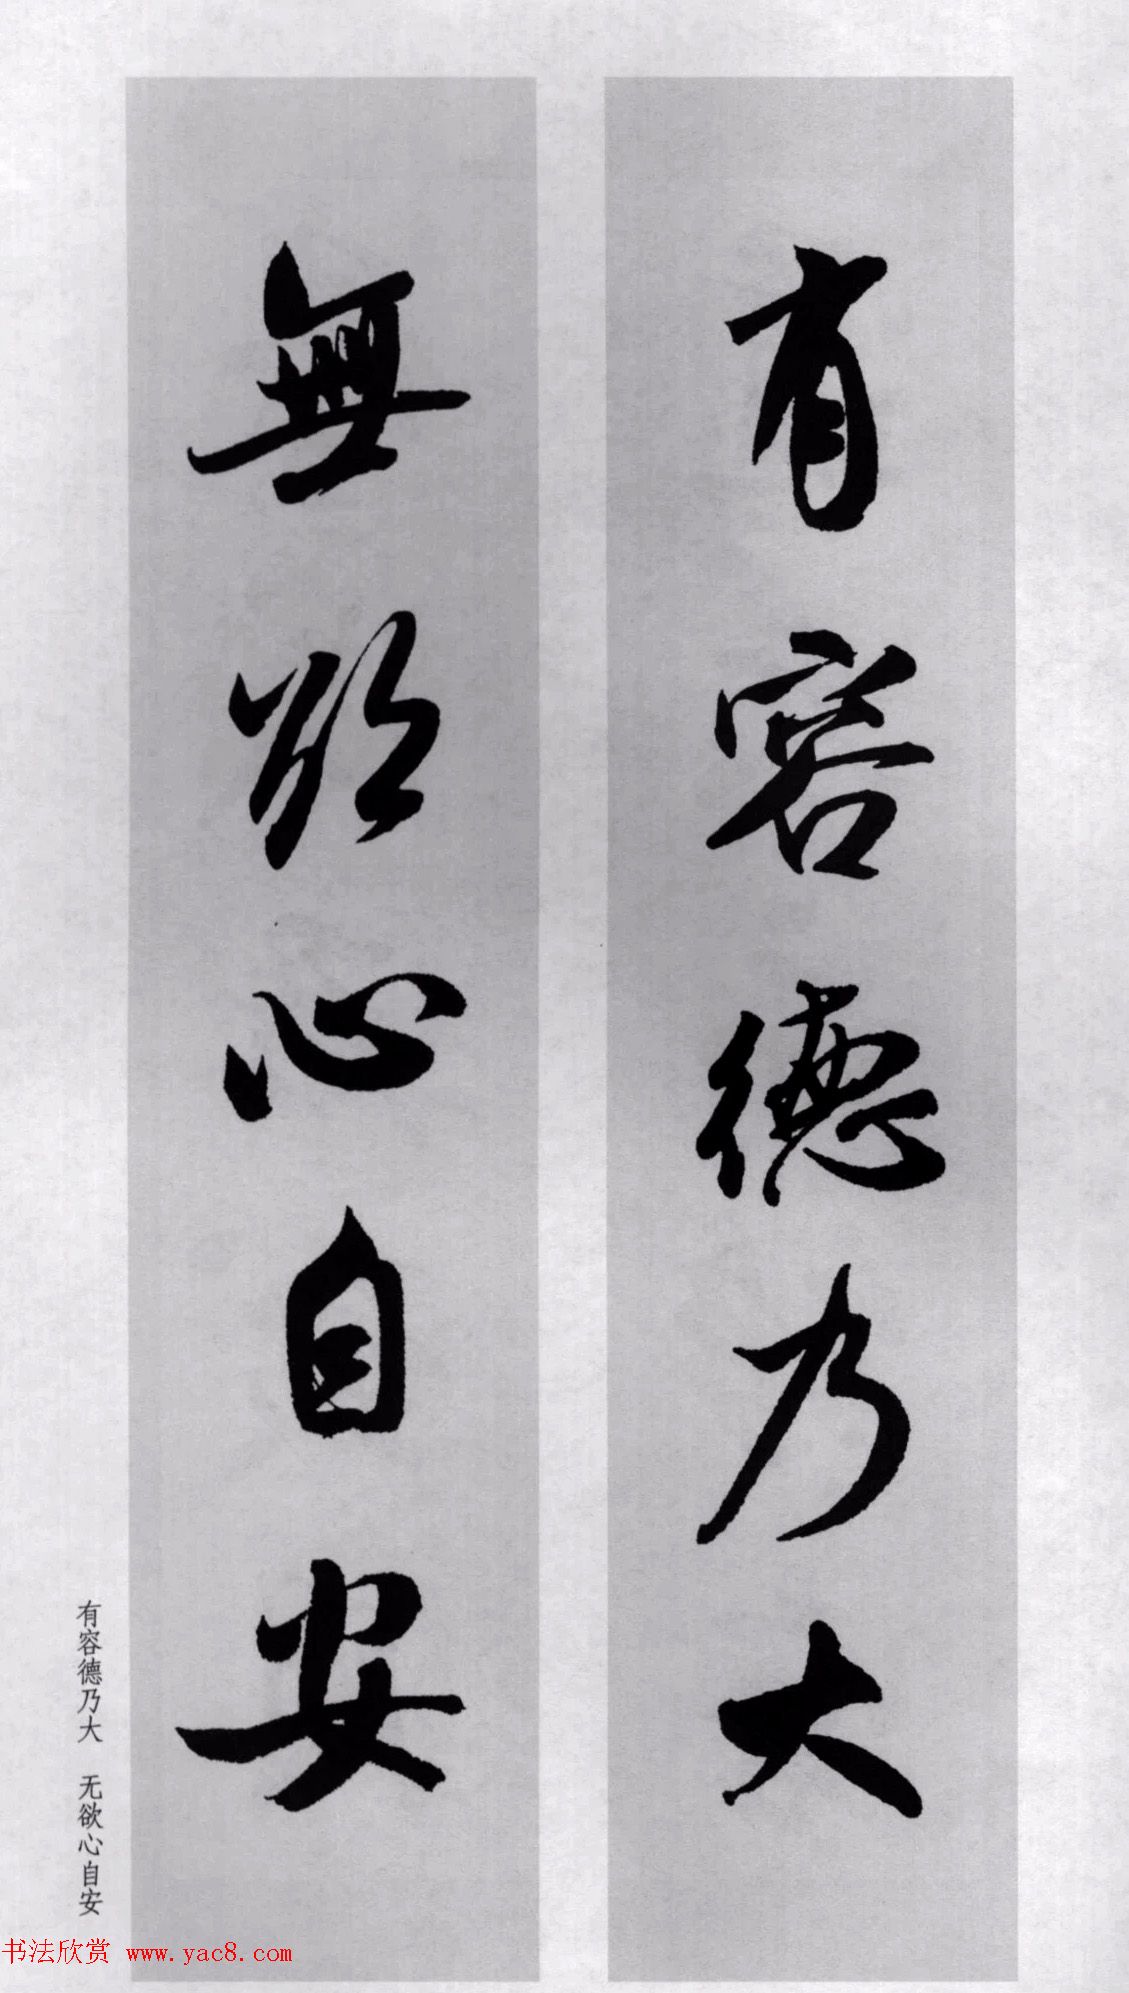 有容德乃大
無欲心自安
有容德乃大 无欲心自安
书法欣赏 www.yac8.com